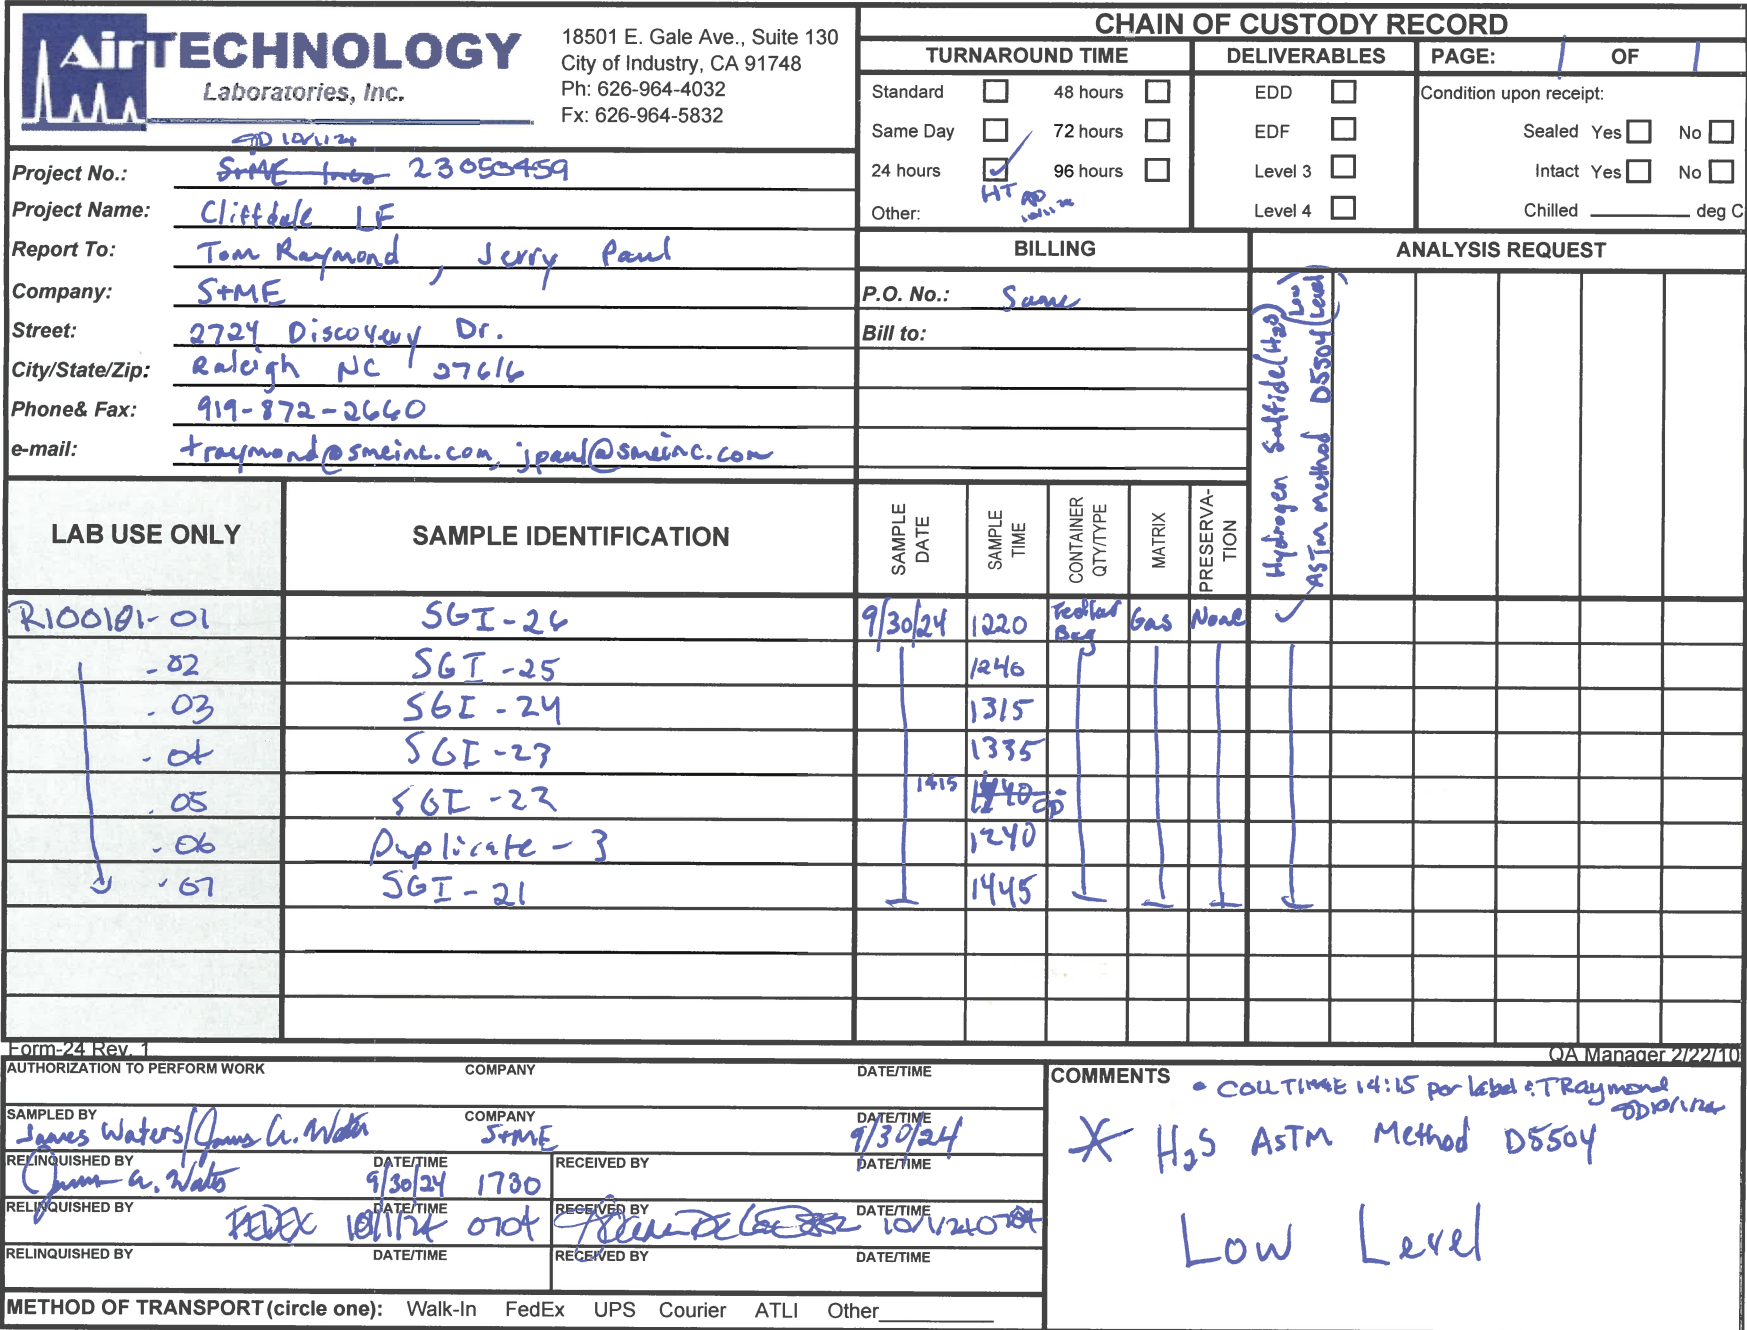 AirTECHNOLOGY
Laboratories, Inc.
18501 E. Gale Ave., Suite 130
City of Industry, CA 91748
Ph: 626-964-4032
Fx: 626-964-5832
CHAIN OF CUSTODY RECORD
TURNAROUND TIME
Standard 48 hours
Same Day 72 hours
24 hours ✓ 96 hours
HT
10/1/24
Other:
DELIVERABLES
EDD
EDF
Level 3
Level 4
PAGE: 1 OF 1
Condition upon receipt:
Sealed Yes No
Intact Yes No
Chilled ________ deg C
10/1/24
Project No.: S+ME Inc 23050459
Project Name: Cliffdale LF
Report To: Tom Raymond, Jerry Paul
Company: S+ME
Street: 2724 Discovery Dr.
City/State/Zip: Raleigh NC 27616
Phone& Fax: 919-872-2660
e-mail: traymond@smeinc.com, jpaul@smeinc.com
BILLING
P.O. No.: Same
Bill to:
ANALYSIS REQUEST
Hydrogen Sulfide (H2S) (Low
ASTM Method D5504 Level)
LAB USE ONLY SAMPLE IDENTIFICATION SAMPLE DATE SAMPLE TIME CONTAINER QTY/TYPE MATRIX PRESERVA-TION
R100101-01 SGI-26 9/30/24 1220 Tedlar Bag Gas None ✓
-02 SGI-25 1240
-03 SGI-24 1315
-04 SGI-23 1335
-05 SGI-22 1415 1440
-06 Duplicate-3 1240
-07 SGI-21 1445
Form-24 Rev. 1 QA Manager 2/22/10
AUTHORIZATION TO PERFORM WORK COMPANY DATE/TIME
SAMPLED BY COMPANY DATE/TIME
James Waters/James A. Waters S+ME 9/30/24
RELINQUISHED BY DATE/TIME RECEIVED BY DATE/TIME
James A. Waters 9/30/24 1730
RELINQUISHED BY DATE/TIME RECEIVED BY DATE/TIME
FEDEX 10/1/24 0704 10/1/24 0704
RELINQUISHED BY DATE/TIME RECEIVED BY DATE/TIME
METHOD OF TRANSPORT (circle one): Walk-In FedEx UPS Courier ATLI Other________
COMMENTS
• COLL TIME 14:15 per label & TRaymond
10/1/24
* H2S ASTM Method D5504
Low Level